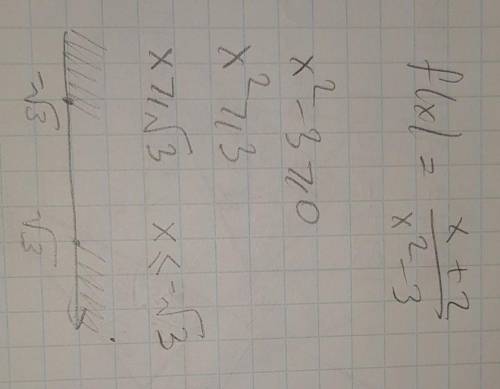 f(x) = (x+2)/(x²-3)
x²-3≥0
x²≥3
x≥√3 x≤-√3
-√3 √3